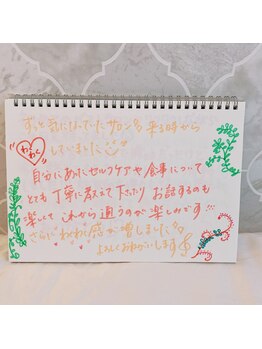 ずっと気になっていたサロン♪ 来る時から
わくわく していました
自分にあったセルフケアや食事について
とても丁寧に教えて下さったり お話するのも
楽しくて これから通うのが楽しみです!!!
さらにわくわく感が増しました♪
よろしくお願いします